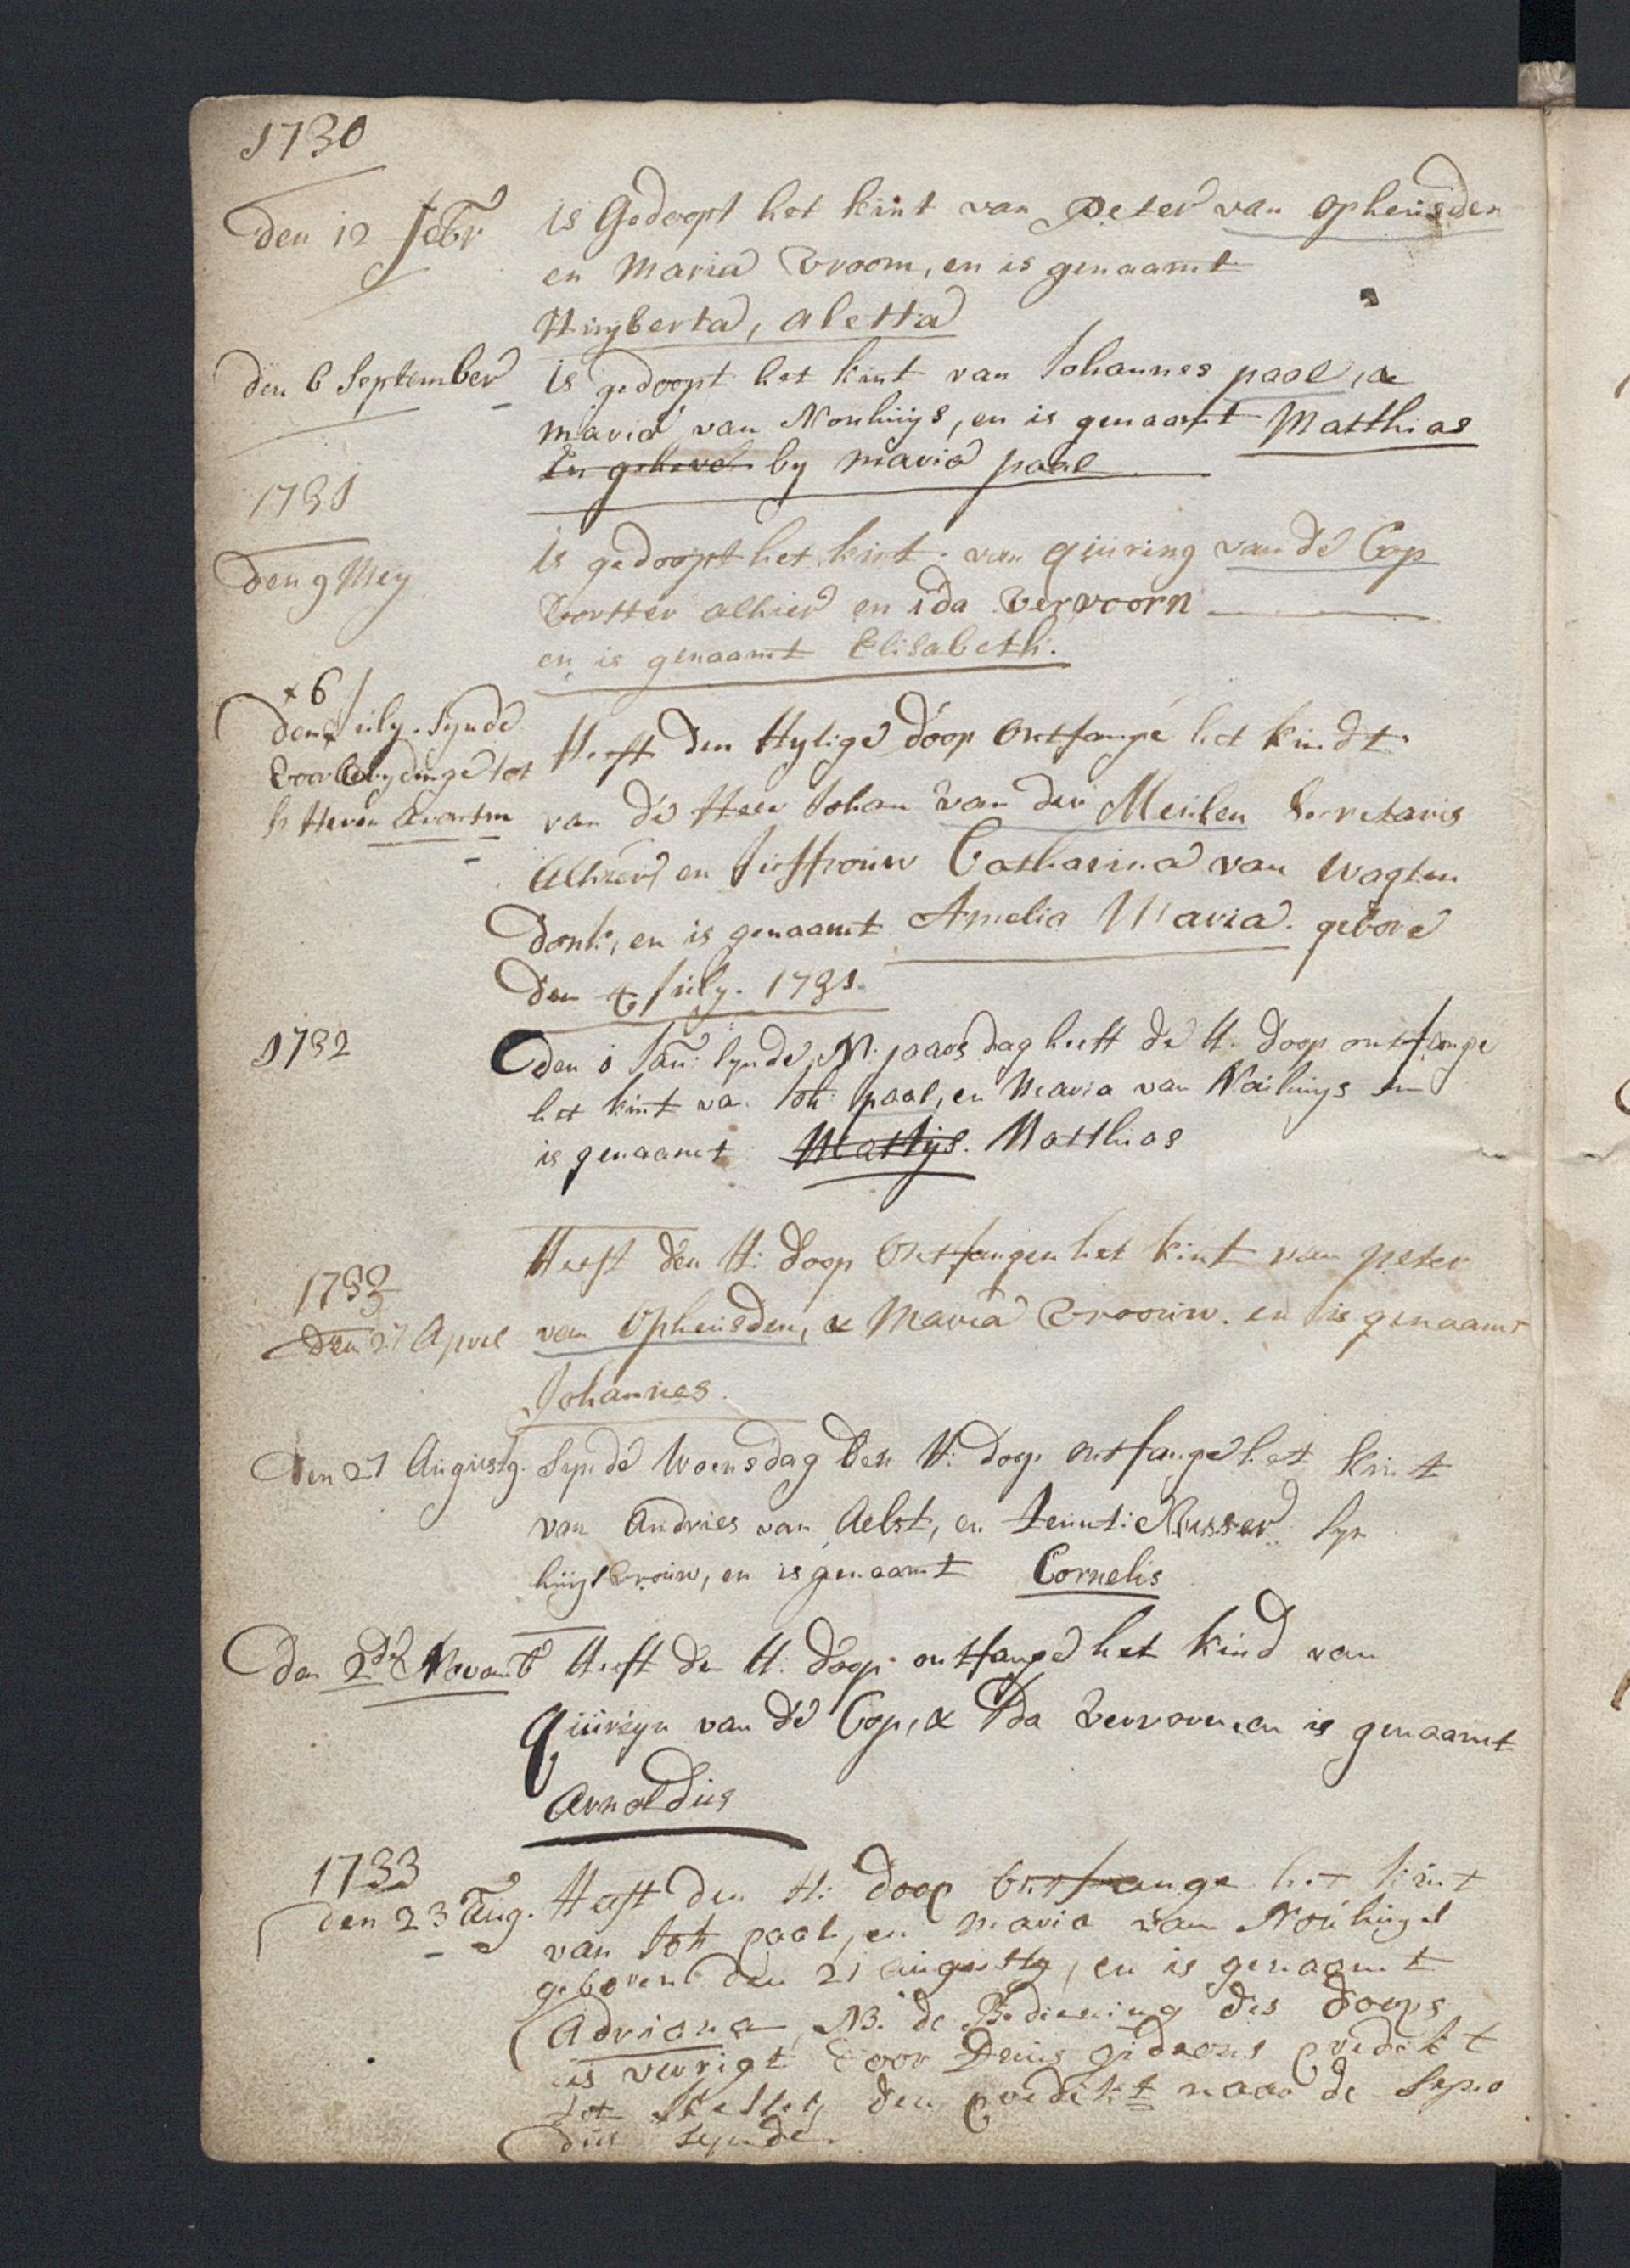 1730
den 12 Febr is Gedoopt het kint van Peter van Opheusden
en Maria Vroom, en is genaamt
Huijberta, Aletta
den 6 September is gedoopt het kint van Johannes paal, &
maria van Nouhuijs, en is genaamt Matthias
by maria paal
1731
den 9 Mey is gedoopt het kint van Quiring van de Cop
Vorster alhier en ida Vervoorn
en is genaamt Elisabeth.
* 6
den July. Synde Heeft den Hylige doop ontfange het kindt
Voorbereydinge tot
van de Heer Johan van der Meulen Secretaris
Alhier en Juffrouw Catharina van Wagten
donk, en is genaamt Amelia Maria. gebore
den July. 1731.
1732 den Jan: Synde N. jaars dag heeft de H. doop ontfange
het kint va. Joh: paal, en Maria van Nauhuijs en
is genaamt Mattijs. Matthias
Heeft den H: doop Ontfangen het kint van peter
1733
den 27 April van Opheusden, & Maria Vroouw. en is genaamt
Johannes.
den 27 Augusty. Synde Woensdag den H: doop ontfange het kint
van Andries van Aelst, en Teunt: Russer Syn
huijsvrouw, en is genaamt Cornelis
den 2de Novemb Heeft de H: doop ontfange het kind van
Quirijn van de Cop, & Ida Vervoren en is genaamt
Arnoldus
1733
den 23 Aug. Heeft den H: doop Ontfange het kint
van Joh paal, en maria van Nouhuijs
geboren den 21 augusty, en is genaamt
Adriana, NB. de Bediening des doops
is verrigt door gideons predikt
tot den predikt naar de
Synde.